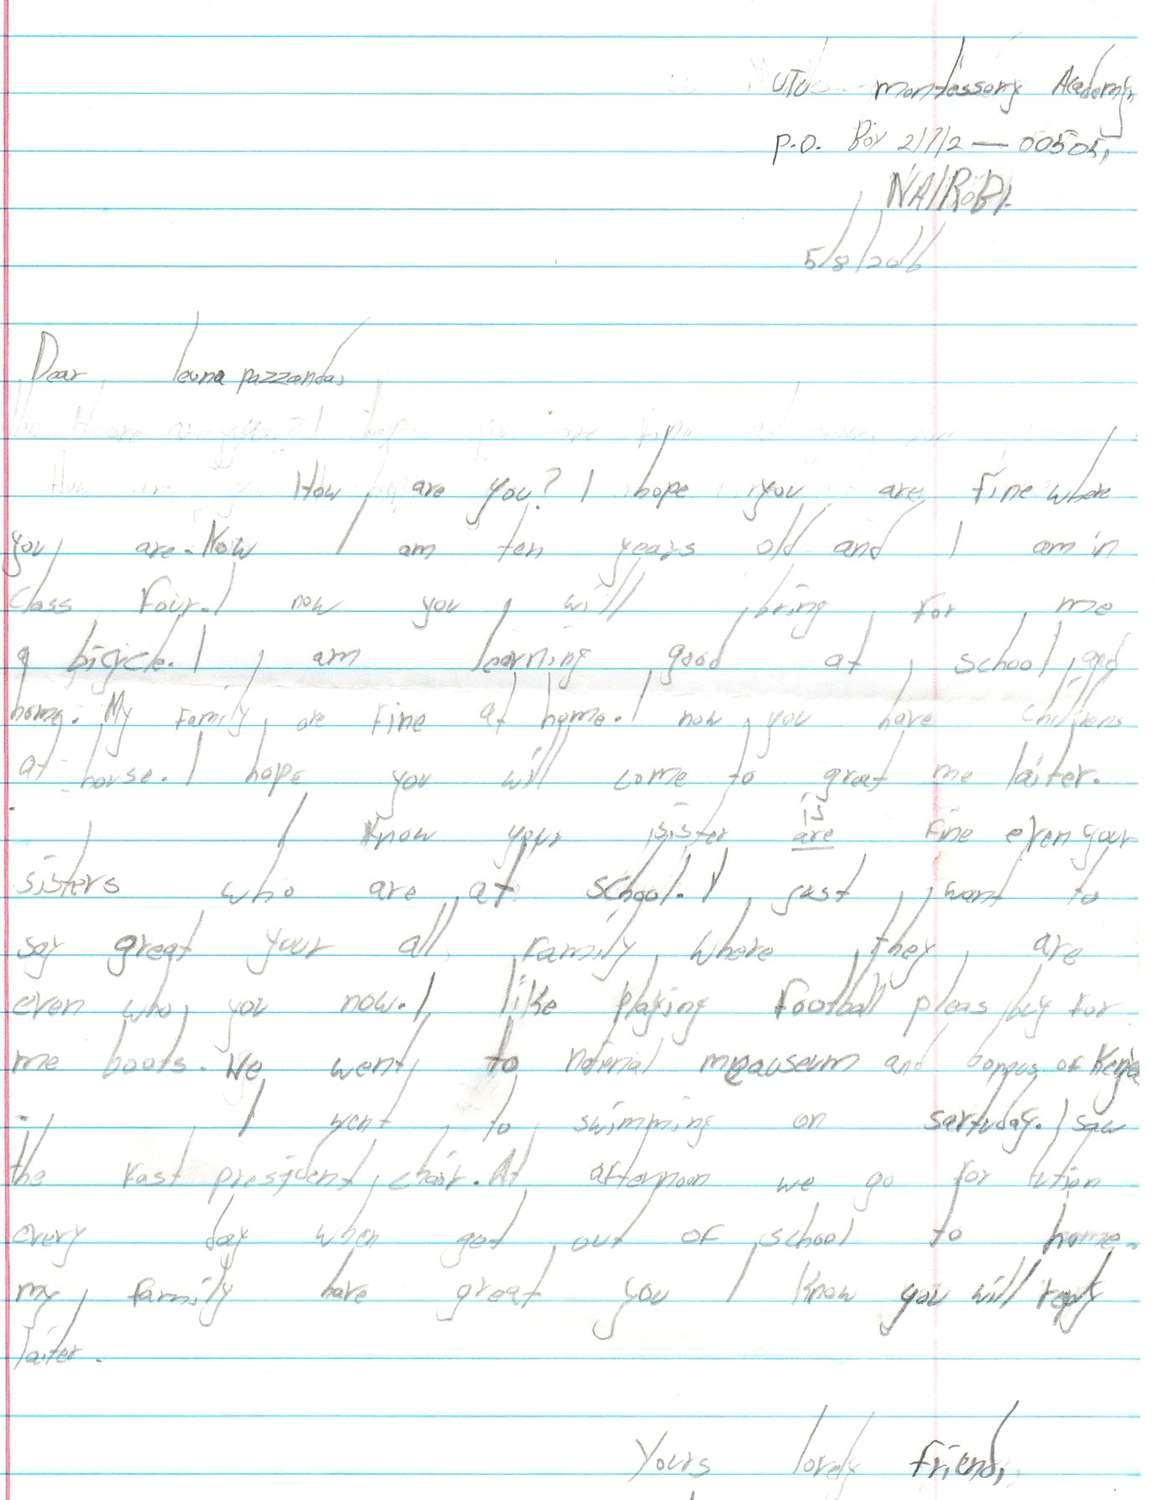 UTU Montessory Academy
P.O. Box 21712 — 00505,
NAIROBI.
5/8/2016
Dear
How are you? I hope you are fine where
you are. Now I am ten years old and I am in
class Four. I now you will bring for me
a bicycle. I am learning good at school and
home. My Family are Fine at home. I now you have childrens
at house. I hope you will come to great me laiter.
I Know your sister is are Fine even your
sisters who are at school. I just want to
say great your all Family Where they are
even who you now. I like Playing Football pleas buy for
me boots. We went to and of Kenya
. I went to swimming on I saw
the president chair. At afternoon we go for tution
every day when get out of school to home.
my family have great you I Know you will reply
laiter.
Yours lovely friend,